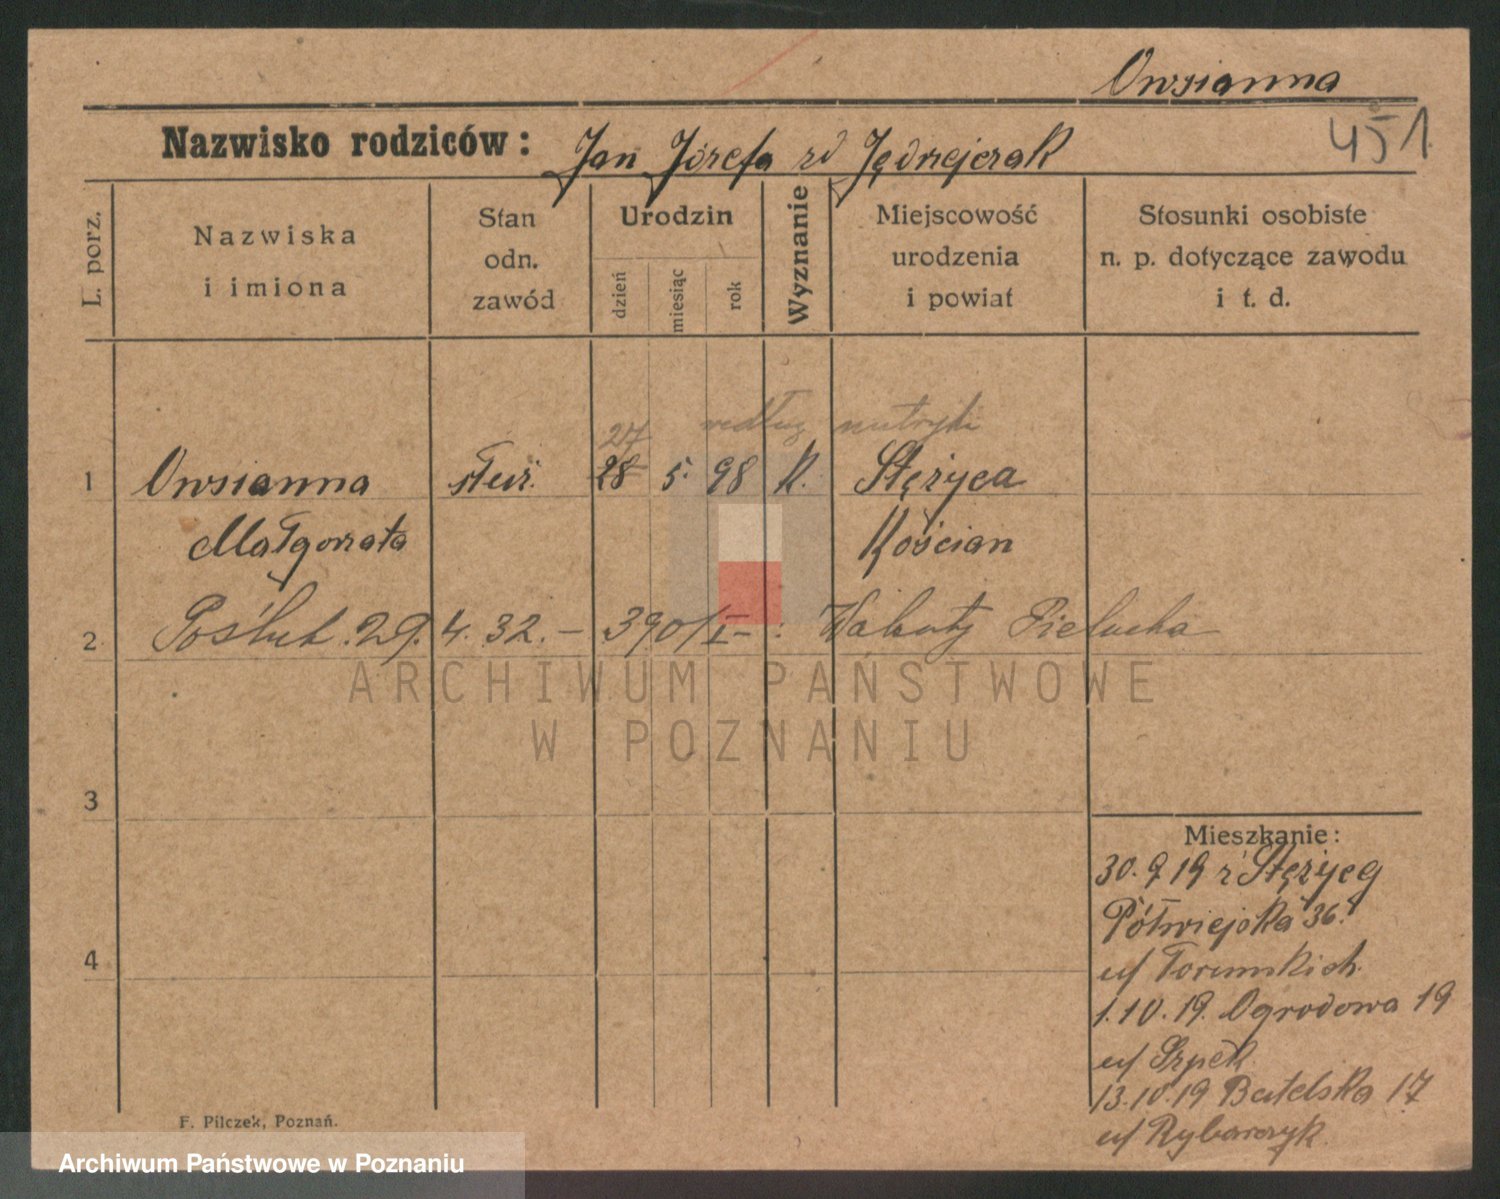 Owsianna
Nazwisko rodziców: Jan Józefa zd Jędrzejczak
451
L. porz.
Nazwiska i imiona
Stan odn. zawód
Urodzin
dzień
miesiąc
rok
Wyznanie
Miejscowość urodzenia i powiat
Stosunki osobiste n. p. dotyczące zawodu i t. d.
27 według metryki
1 Owsianna służ. 28 5. 98 K. Stężyca
Małgorzata Kościan
2 Poślub. 29. 4. 32. – 390/I – : Walenty Pielucha
ARCHIWUM PAŃSTWOWE
W POZNANIU
3
Mieszkanie:
30. 9 19 z Stężycy
Półwiejska 36.
4
u/ Toruńskich
1.10.19. Ogrodowa 19
u/
13.10.19 Butelska 17
u/ Rybarczyk.
F. Pilczek, Poznań.
Archiwum Państwowe w Poznaniu